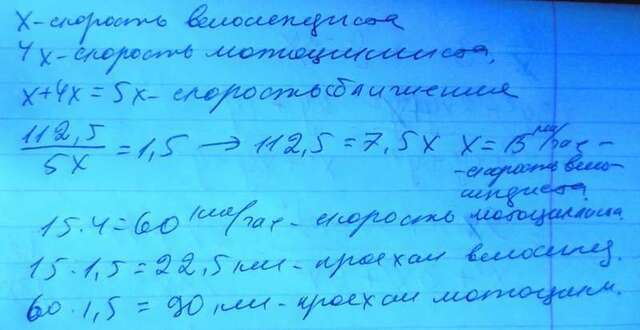 x - скорость велосипедиста
4x - скорость мотоциклиста.
x+4x=5x - скорость сближения
112,5/5x = 1,5 → 112,5=7,5x x=15 км/час -
- скорость вело-
сипедиста
15·4=60 км/час - скорость мотоциклиста.
15·1,5=22,5 км - проехал велосипед.
60·1,5=90 км - проехал мотоцикл.